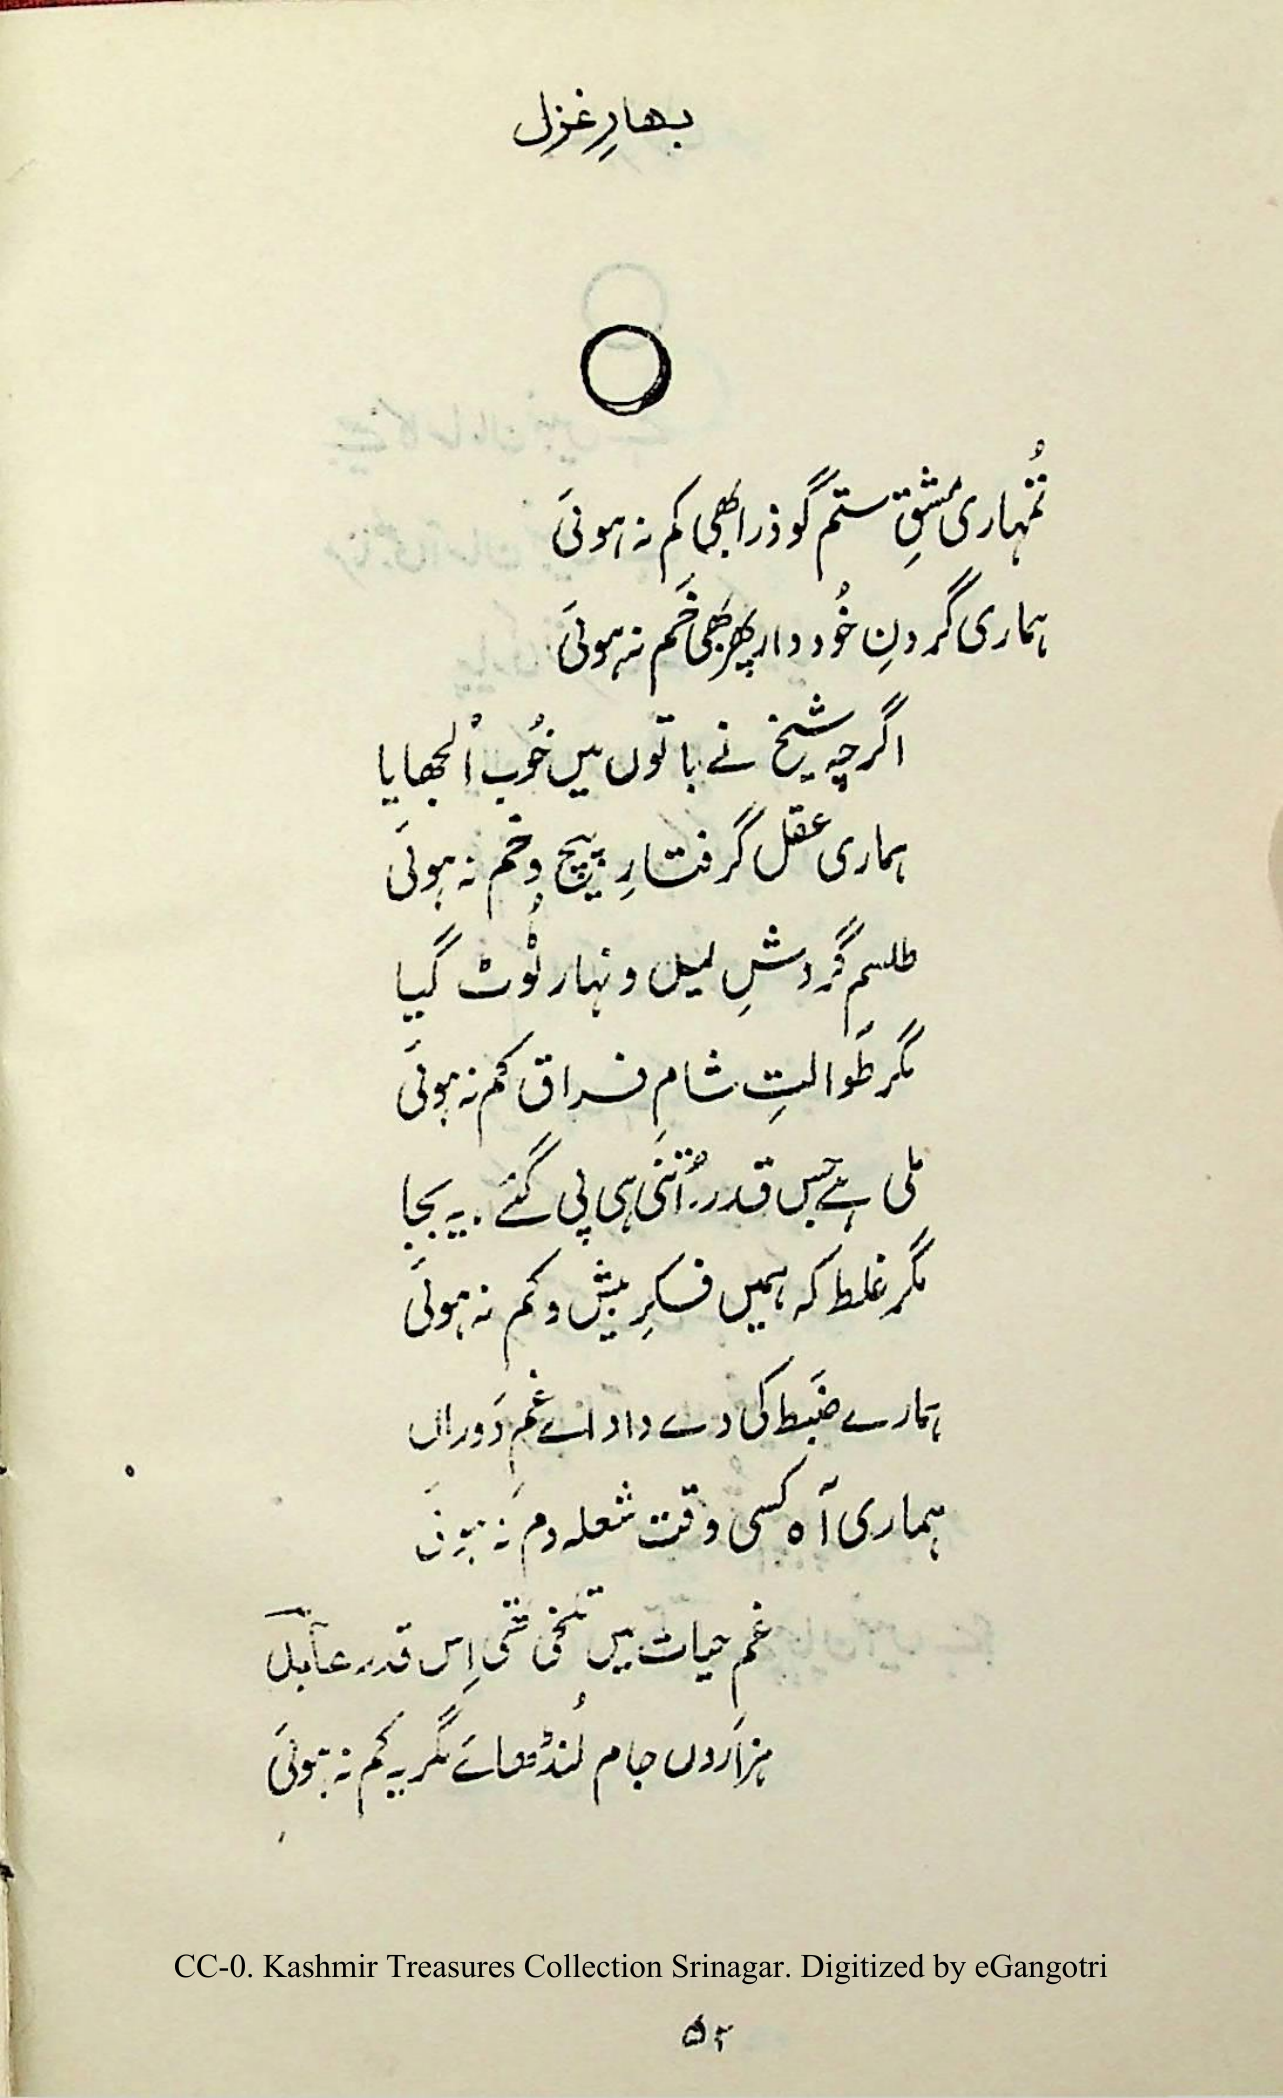 بہارِ غزل
تُمہاری مشقِ ستم گو ذرا بھی کم نہ ہوئی
ہماری گردنِ خُود دار پھر بھی خَم نہ ہوئی
اگرچہ شیخ نے باتوں میں خُوب اُلجھایا
ہماری عقل گرفتارِ پیچ و خم نہ ہوئی
طلسمِ گردشِ لیل و نہار ٹُوٹ گیا
مگر طَوالتِ شامِ فراق کم نہ ہوئی
ملی ہے جس قدر اُتنی ہی پی گئے. یہ بجا
مگر غلط کہ ہمیں فکرِ بیش و کم نہ ہوئی
ہمارے ضَبط کی دے داد اے غمِ دَوراں
ہماری آہ کسی وقت شعلہ دم نہ ہوئی
غمِ حیات میں تلخی تھی اِس قدر
ہزاروں جام لُنڈھائے مگر یہ کم نہ ہوئی
CC-0. Kashmir Treasures Collection Srinagar. Digitized by eGangotri
۵۲